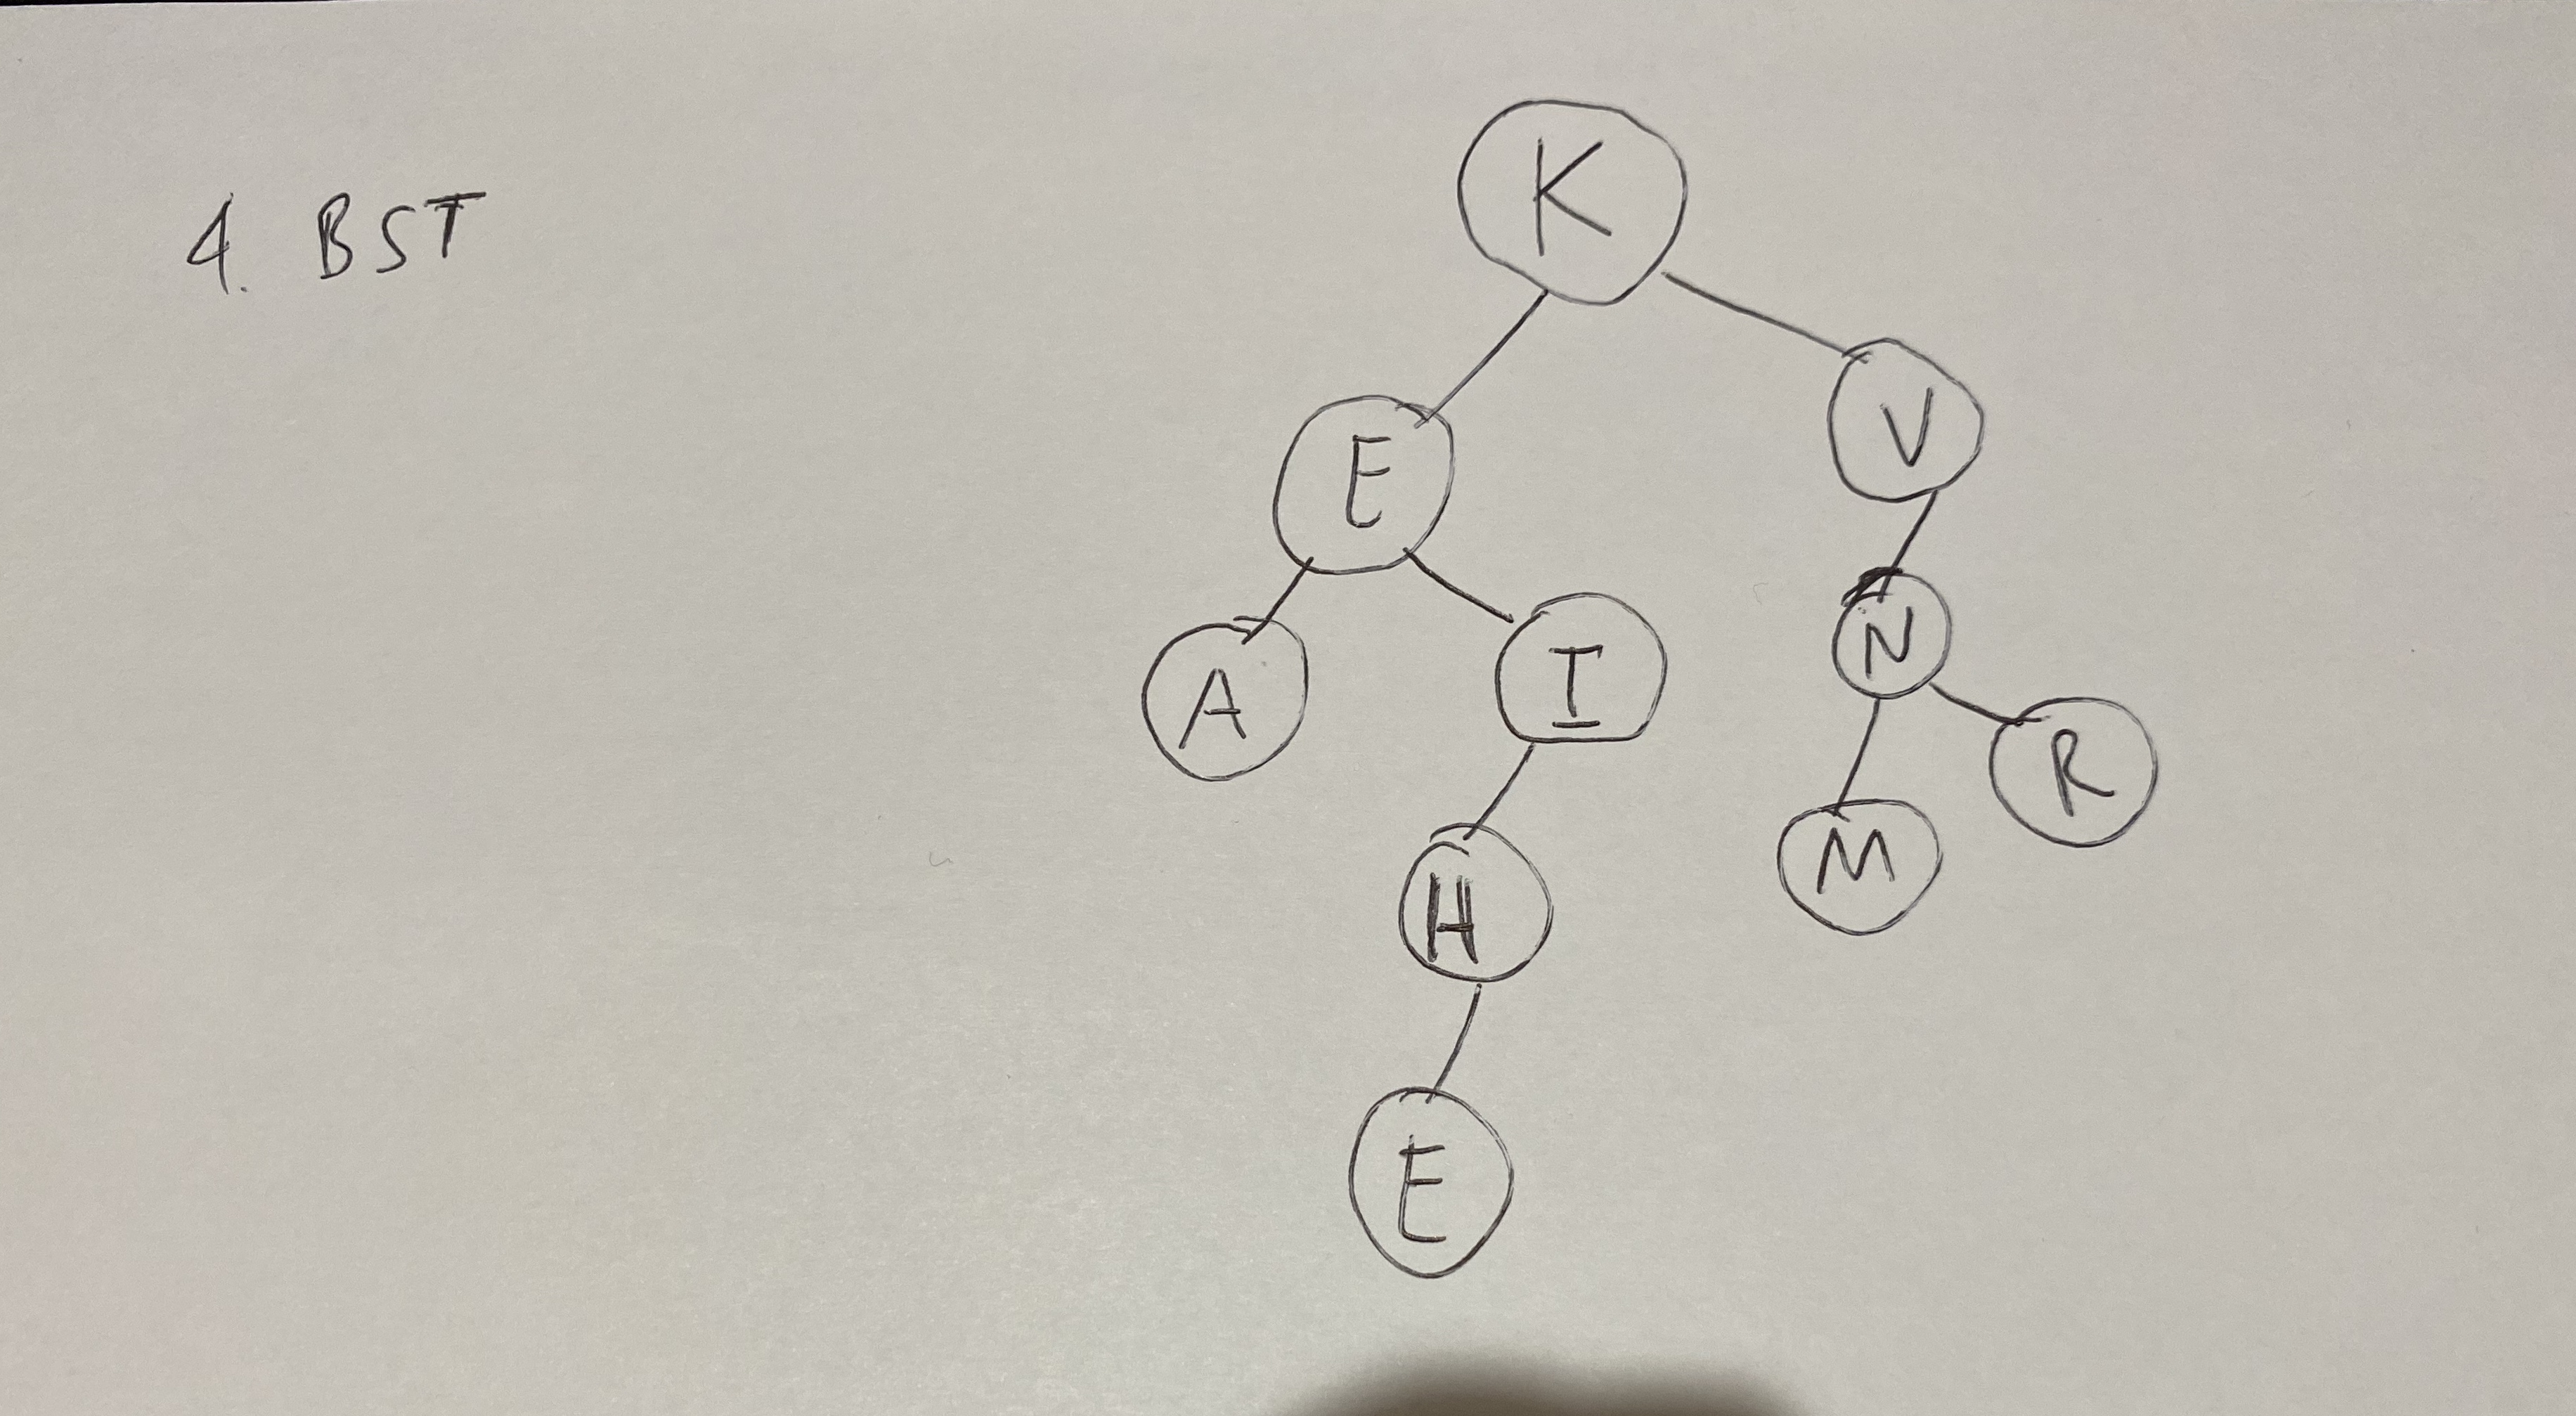 4. BST
K
E V
A I N
H M R
E